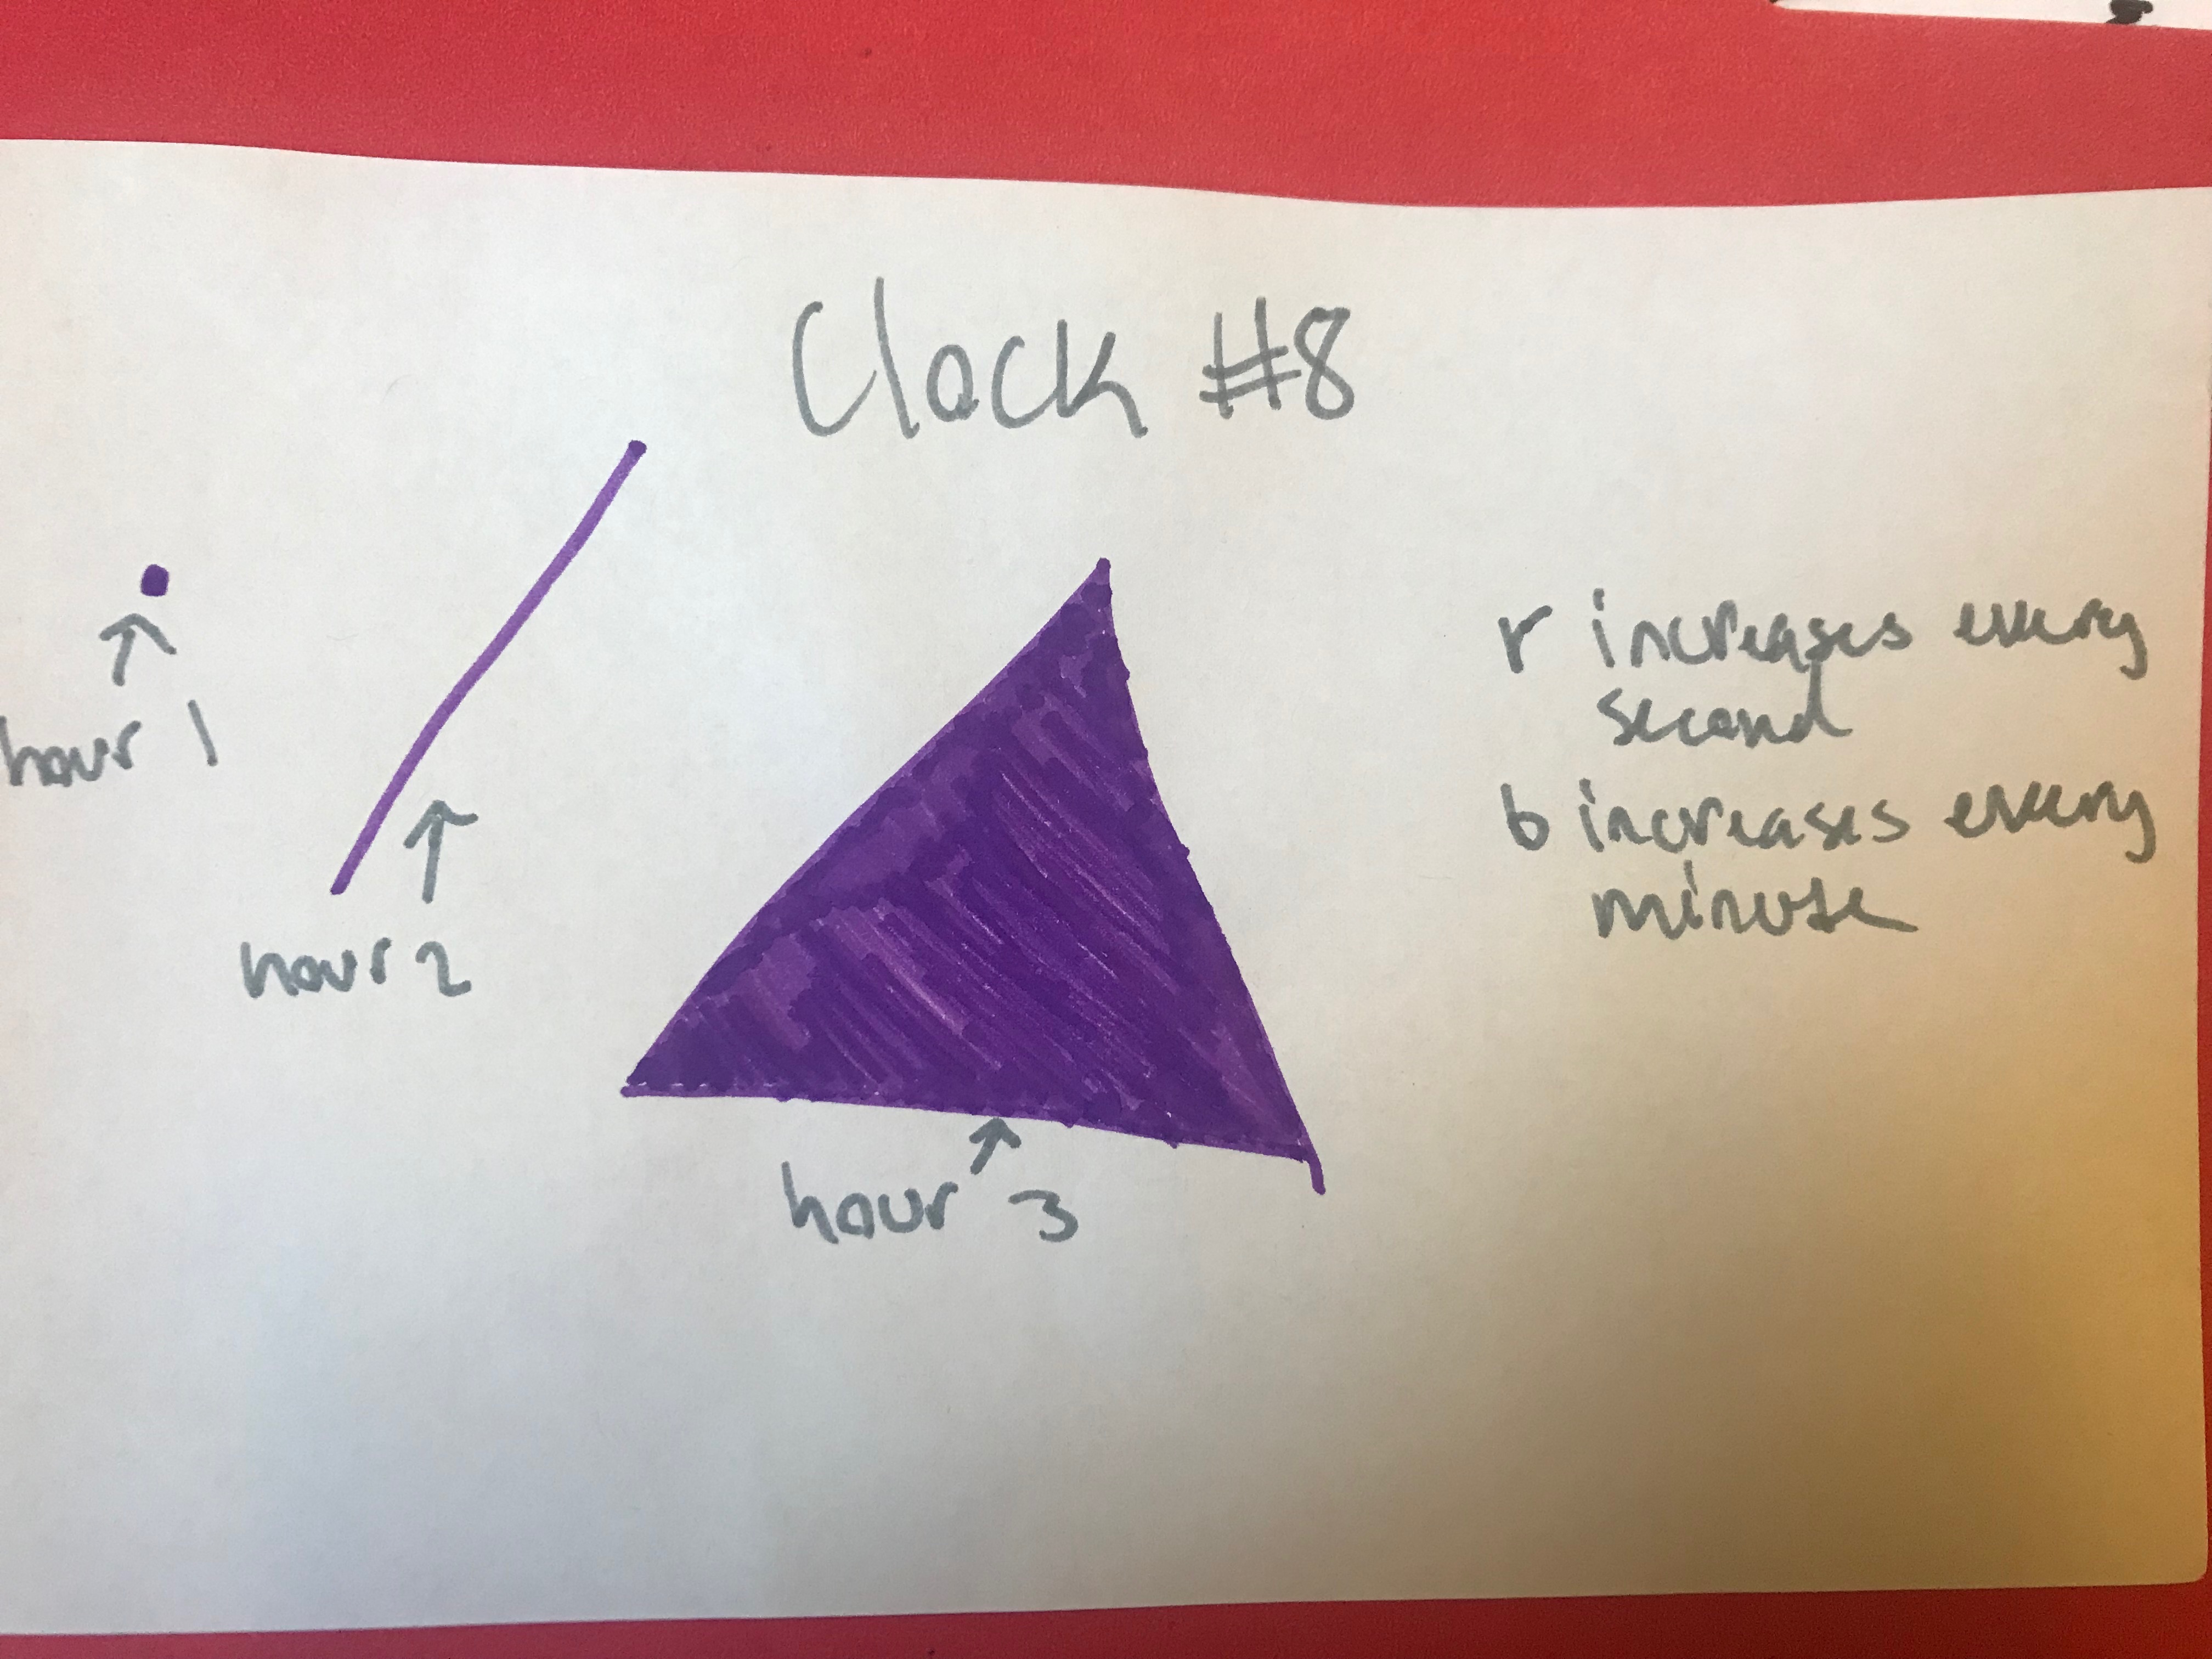 Clock #8
hour 1
hour 2
hour 3
r increases every
second
b increases every
minute